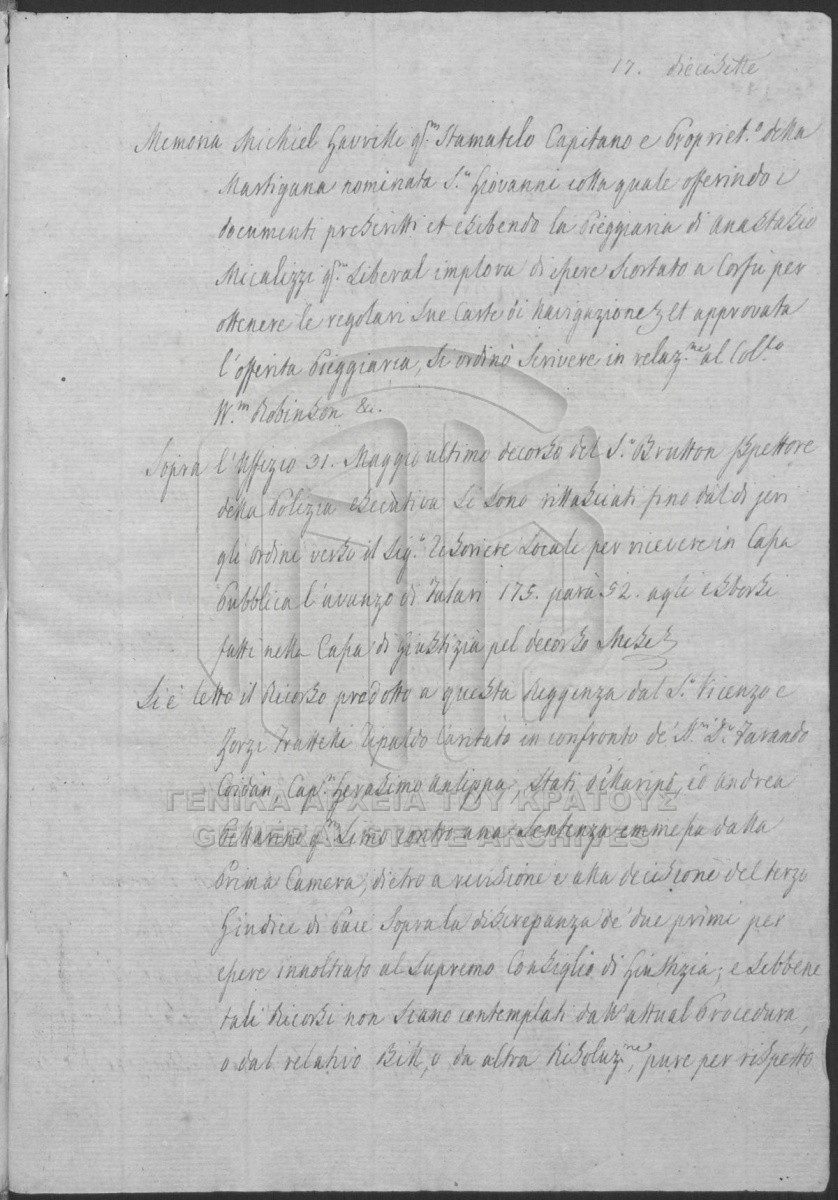 17. diecisette
Memoria Michiel Gavrilli q.m Stamatelo Capitano e Propriet.o della
Martigana nominata S.n Giovanni colla quale offerindo i
documenti prescritti et esebendo la Pieggiaria di Anastasio
Micalizzi q.m Liberal implora di essere scortato a Corfù per
ottenere le regolari sue Carte di Navigazione, et approvata
l'offerita Pieggiaria, si ordinò scrivere in relaz.ne al Col.lo
W.m Robinson &c.
Sopra l'Uffizio 31. Maggio ultimo decorso del S.r Brutton Ispettore
della Polizia esecutiva si sono rillasciati fino dal dì jeri
gli ordini verso il Sig.r Tesoriere Locale per ricevere in Cassa
Pubblica l'avanzo di Talari 175. parà 52. agli esborsi
fatti nella Cassa di Giustizia pel decorso Mese
Si è letto il Ricorso prodotto a questa Reggenza dal S.r Vicenzo e
Zorzi Frattelli Tipaldo in confronto de'
Cap.n Gerasimo Anlippa, Andrea
q.m Simo contro una Sentenza emmessa dalla
Prima Camera, dietro a revisione e alla decisione del terzo
Giudice di Pace sopra la discrepanza de' due primi per
essere innoltrato al Supremo Consiglio di Giustizia; e sebbene
tali Ricorsi non siano contemplati dall'attual Procedura,
o dal relativo Bill, o da altra Risoluz.ne, pure per rispetto
ΓΕΝΙΚΑ ΑΡΧΕΙΑ ΤΟΥ ΚΡΑΤΟΥΣ
GENERAL STATE ARCHIVES